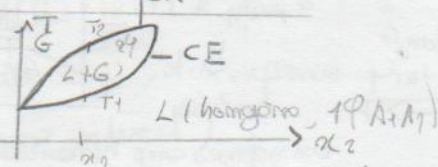 T
G
T2
2φ
CE
L+G
T1
L (homogène, 1φ A1A2)
x2
x2